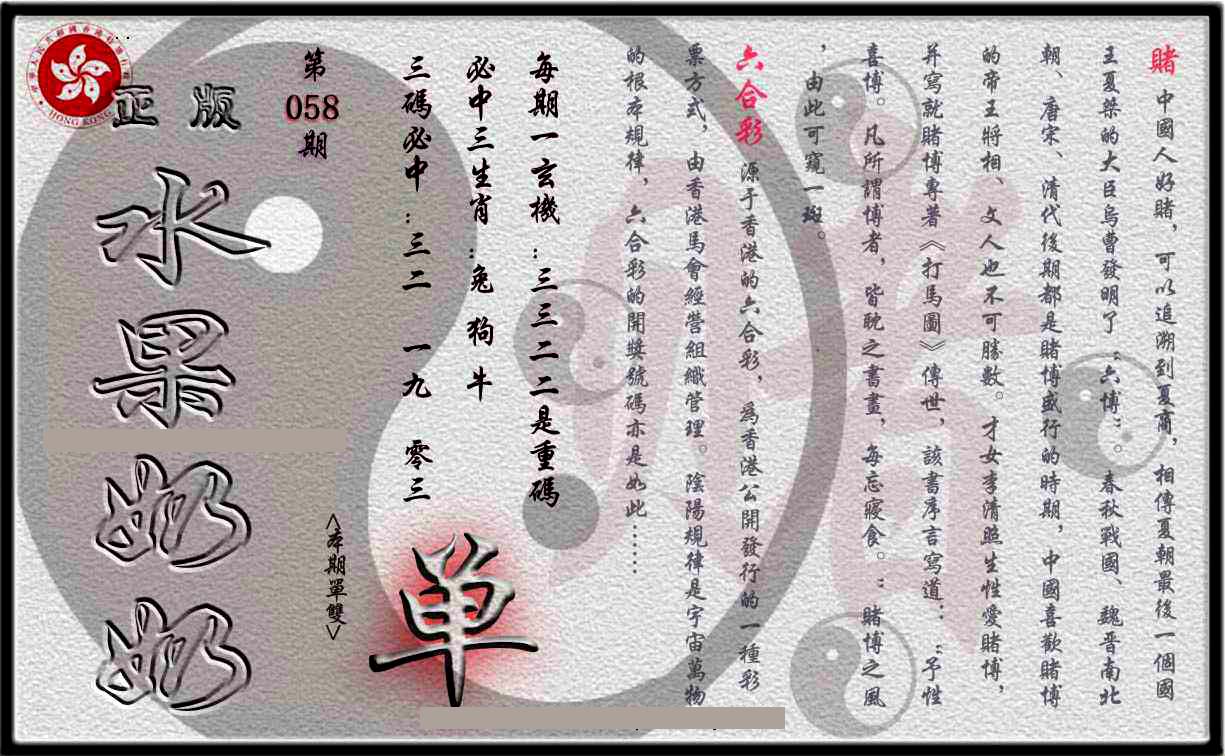 賭 中國人好賭，可以追溯到夏商，相傳夏朝最後一個國
王夏桀的大臣烏曹發明了“六博”春秋戰國、魏晋南北
朝、唐宋、清代後期都是賭博盛行的時期，中國喜歡賭博
的帝王將相、文人也不可勝數。才女李清照生性愛賭博，
并寫就賭博專著《打馬圖》傳世，該書序言寫道：“予性
喜博。凡所謂博者，皆耽之書畫，每忘寢食。”賭博之風
，由此可窺一斑。
六合彩 源于香港的六合彩，為香港公開發行的一種彩
票方式，由香港馬會經營組織管理。陰陽規律是宇宙萬物
的根本規律，六合彩的開獎號碼亦是如此……
每期一玄機：三三二二是重碼
必中三生肖：兔 狗 牛
三碼必中：三二 一九 零三
单
<本期單雙>
第
058
期
正版
水果奶奶
HONG KONG